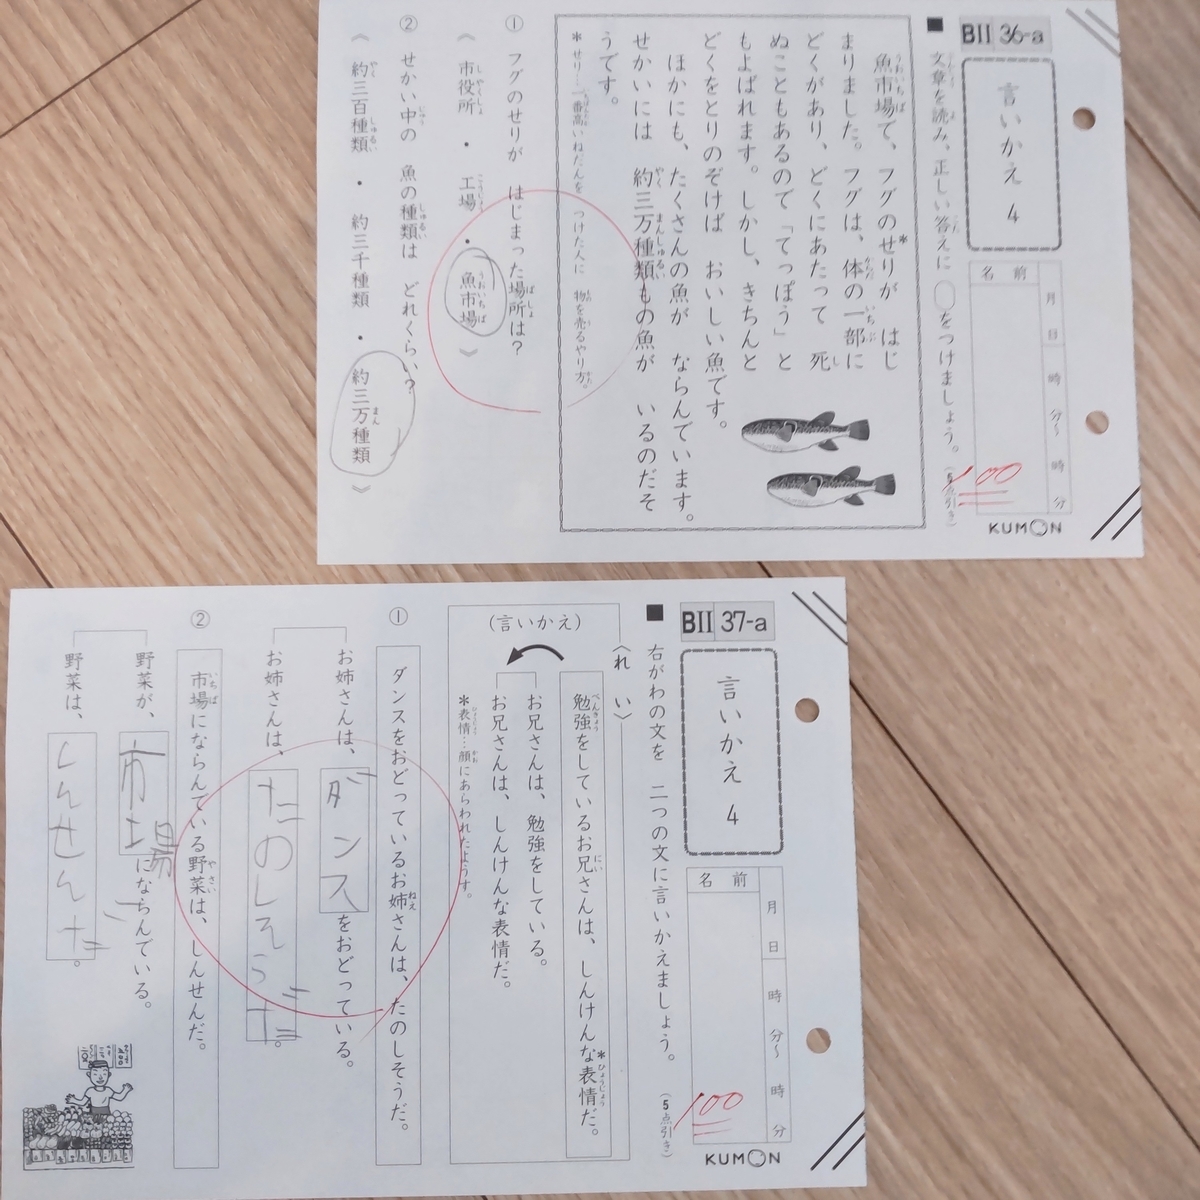 BII 36-a
言いかえ 4
名前
月 日
時 分〜 時 分
100
KUMON
■ 文章を読み、正しい答えに ○をつけましょう。
(5点引き)
魚市場で、フグのせり*が はじ
まりました。フグは、体の一部に
どくがあり、どくにあたって 死
ぬこともあるので「てっぽう」と
もよばれます。しかし、きちんと
どくをとりのぞけば おいしい魚です。
ほかにも、たくさんの魚が ならんでいます。
せかいには 約三万種類もの魚が いるのだそ
うです。
*せり…一番高いねだんを つけた人に 物を売るやり方。
① フグのせりが はじまった場所は?
《 市役所 ・ 工場 ・ 魚市場 》
② せかい中の 魚の種類は どれくらい?
《 約三百種類 ・ 約三千種類 ・ 約三万種類 》
BII 37-a
言いかえ 4
名前
月 日
時 分〜 時 分
100
KUMON
■ 右がわの文を 二つの文に言いかえましょう。
(5点引き)
〈れい〉
勉強をしているお兄さんは、しんけんな*表情だ。
(言いかえ)
お兄さんは、勉強をしている。
お兄さんは、しんけんな表情だ。
*表情…顔にあらわれたようす。
① ダンスをおどっているお姉さんは、たのしそうだ。
お姉さんは、ダンスをおどっている。
お姉さんは、たのしそうだ。
② 市場にならんでいる野菜は、しんせんだ。
野菜が、市場にならんでいる。
野菜は、しんせんだ。